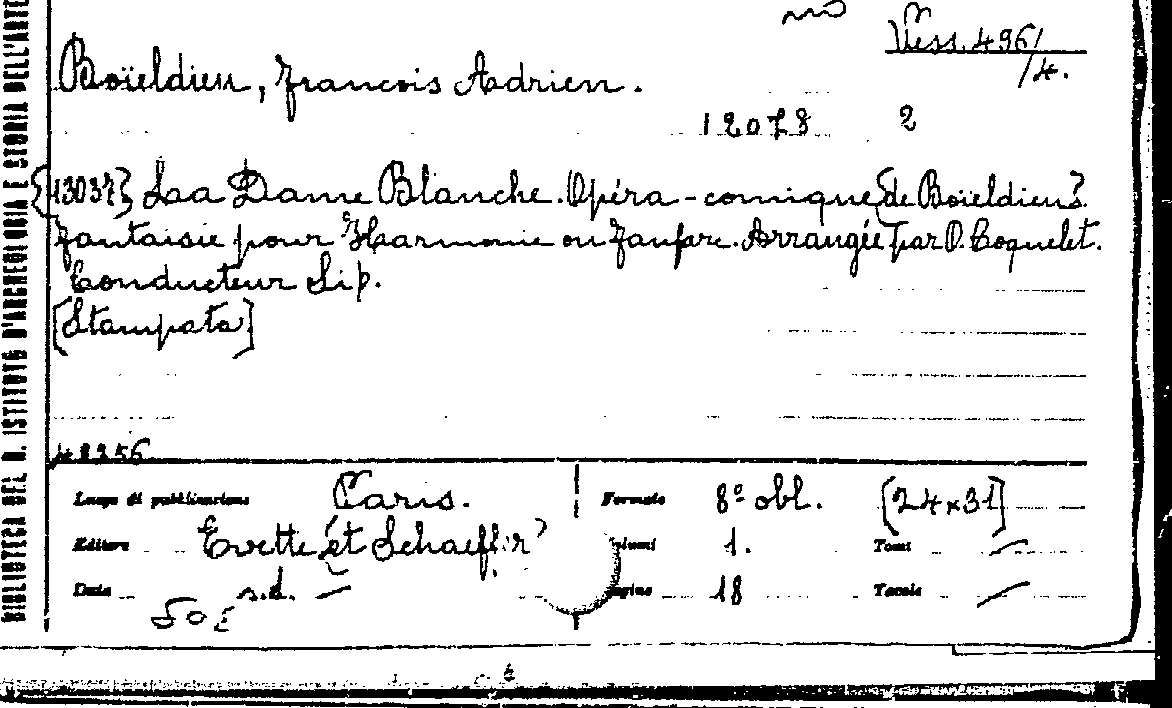 Vess. 496/
/4.
Boïeldieu, Francois Adrien.
12078 2
{13037} Laa Dame Blanche. Opéra-comique {de Boïeldieu}.
Fantaisie pour Harmonie ou Fanfare. Arrangée par O. Coquelet.
Conducteur Sip.
[Stampata]
48256
Luogo di pubblicazione Paris. Formato 8º obl. [24x31]
Editore Evette {et Schaeffer} Volumi 1. Tomi —
Data s.d. — Pagine 18 Tavole —
BIBLIOTECA DEL R. ISTITUTO D'ARCHEOLOGIA E STORIA DELL'ARTE